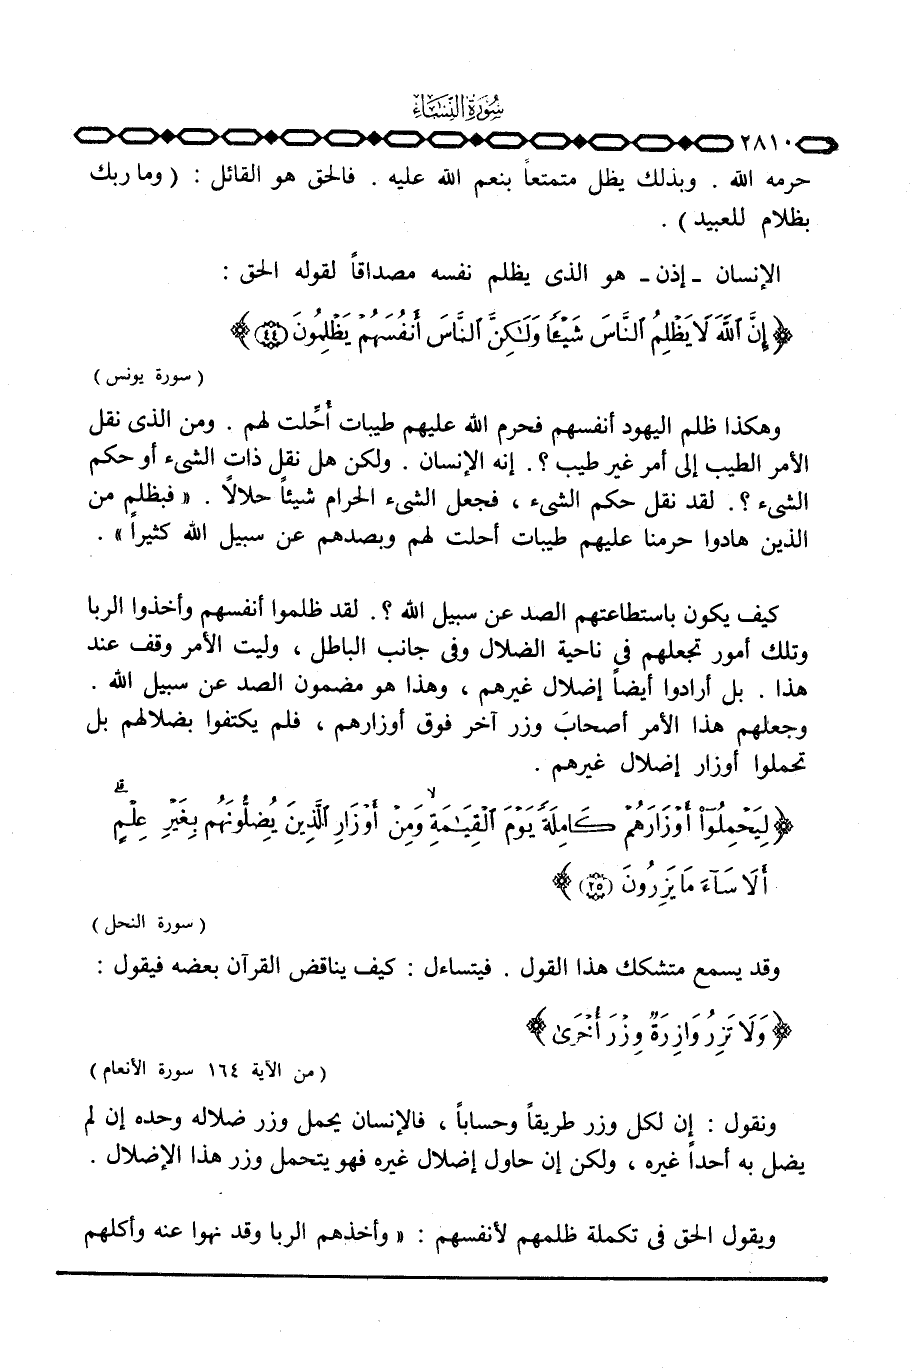 سُورَةُ النِّسَاءِ
٢٨١٠
حرمه الله . وبذلك يظل متمتعاً بنعم الله عليه . فالحق هو القائل : ( وما ربك
بظلام للعبيد ) .
الإنسان ـ إذن ـ هو الذى يظلم نفسه مصداقاً لقوله الحق :
﴿ إِنَّ ٱللَّهَ لَا يَظْلِمُ ٱلنَّاسَ شَيْـًٔا وَلَـٰكِنَّ ٱلنَّاسَ أَنفُسَهُمْ يَظْلِمُونَ (٤٤) ﴾
( سورة يونس )
وهكذا ظلم اليهود أنفسهم فحرم الله عليهم طيبات أُحِّلت لهم . ومن الذى نقل
الأمر الطيب إلى أمر غير طيب ؟. إنه الإنسان . ولكن هل نقل ذات الشىء أو حكم
الشىء ؟. لقد نقل حكم الشىء ، فجعل الشىء الحرام شيئاً حلالاً . « فبظلم من
الذين هادوا حرمنا عليهم طيبات أحلت لهم وبصدهم عن سبيل الله كثيراً » .
كيف يكون باستطاعتهم الصد عن سبيل الله ؟. لقد ظلموا أنفسهم وأخذوا الربا
وتلك أمور تجعلهم فى ناحية الضلال وفى جانب الباطل ، وليت الأمر وقف عند
هذا . بل أرادوا أيضاً إضلال غيرهم ، وهذا هو مضمون الصد عن سبيل الله .
وجعلهم هذا الأمر أصحابَ وزر آخر فوق أوزارهم ، فلم يكتفوا بضلالهم بل
تحملوا أوزار إضلال غيرهم .
﴿ لِيَحْمِلُوٓا۟ أَوْزَارَهُمْ كَامِلَةً يَوْمَ ٱلْقِيَـٰمَةِ ۙ وَمِنْ أَوْزَارِ ٱلَّذِينَ يُضِلُّونَهُم بِغَيْرِ عِلْمٍ ۗ
أَلَا سَآءَ مَا يَزِرُونَ (٢٥) ﴾
( سورة النحل )
وقد يسمع متشكك هذا القول . فيتساءل : كيف يناقض القرآن بعضه فيقول :
﴿ وَلَا تَزِرُ وَازِرَةٌ وِزْرَ أُخْرَىٰ ﴾
( من الآية ١٦٤ سورة الأنعام )
ونقول : إن لكل وزر طريقاً وحساباً ، فالإنسان يحمل وزر ضلاله وحده إن لم
يضل به أحداً غيره ، ولكن إن حاول إضلال غيره فهو يتحمل وزر هذا الإضلال .
ويقول الحق فى تكملة ظلمهم لأنفسهم : « وأخذهم الربا وقد نهوا عنه وأكلهم